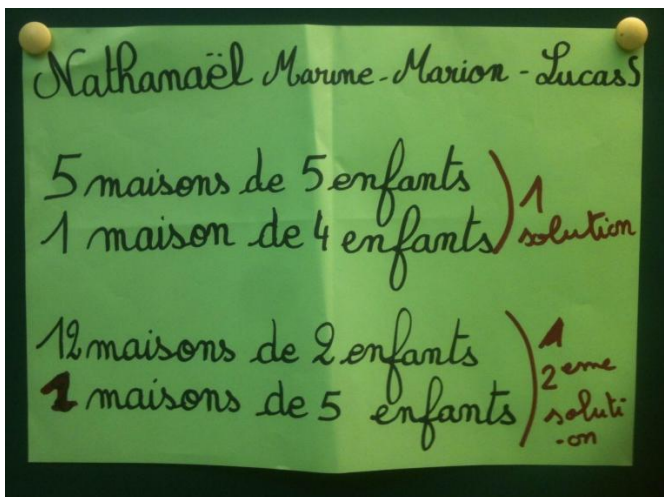 Nathanaël Marine - Marion - Lucas S
5 maisons de 5 enfants
1 maison de 4 enfants
1 solution
12 maisons de 2 enfants
1 maisons de 5 enfants
1
2eme
soluti
-on